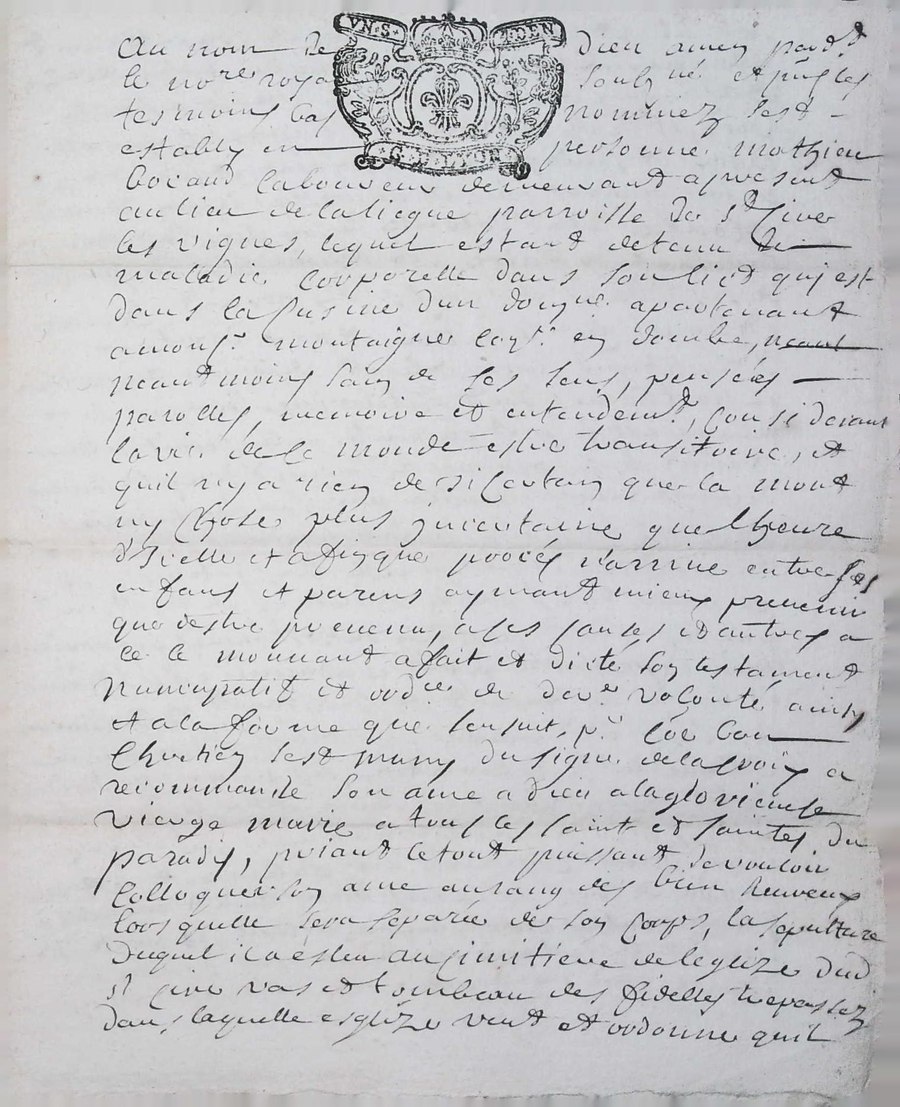 VN·S· A DEN
G· LYON
Au nom de dieu amen pard.t
le no.re roya soubz.né et p.ns les
tesmoins bas nommez sest
estably en personne mathieu
bocand laboureur demeurant apresent
au lieu de la liegue parroisse de s.t Cire
les vignes, lequel estant detenu de
maladie corporelle dans son lict qui est
dans la cusine dun dom.ne apartenant
a mons.r montaigne con.r en dombe, neant
neantmoins sain de ses sens, pensées
parolles, memoire et entendem.t, considerant
la vie de ce monde estre transitoire, et
quil ny a rien de si certain que la mort
ny chose plus incertaine que lheure
d'icelle et afin que procés n'arrive entre ses
enfans et parens aymant mieux prevenir
que destre prevenu, a ces causes et autres a
ce le mouvant a fait et dicté son testament
nuncupatif et ord.re de der.e volonté ainsy
et a la forme que sensuit, p.r co.e bon
chretien sest muny du signe de la croix a
recommandé son ame a dieu a la glorieuse
vierge marie a tous les saint et saintes du
paradis, priant le tout puissant de vouloir
colloquer son ame au rang des bien heureux
lors quelle sera separée de son corps, la sepulture
duquel il a esleu au cimitiere de leglize dud
s.t cire vas et tombeau des fidelles trepassez
dans laquelle esglize veut et ordonne quil